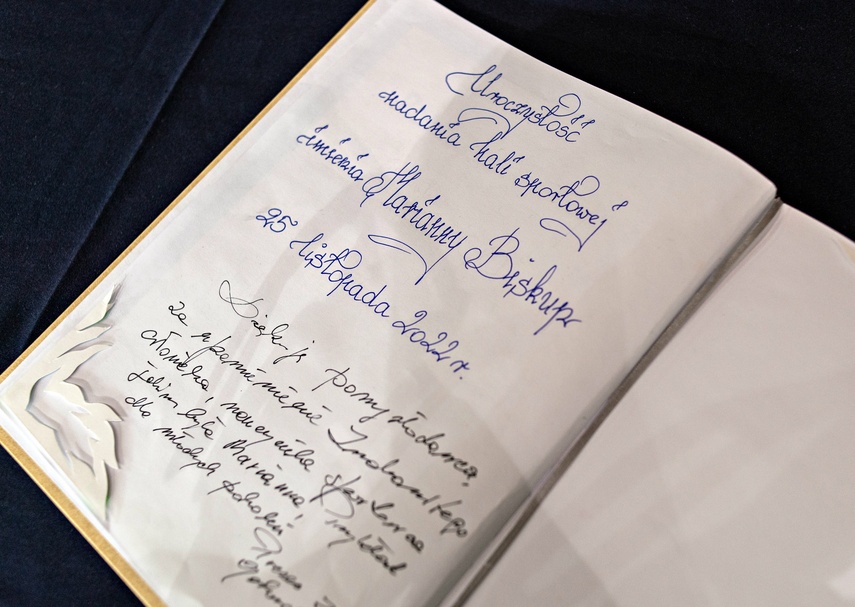 Uroczystość
nadania hali sportowej
imienia Marianny Biskup
25 listopada 2022 r.
Dziękuję pomysłodawcą,
za upamiętnienie Znakomitego
człowieka, nauczyciela Sportowca
Jakim była Marianna! Przykład
dla młodych pokoleń